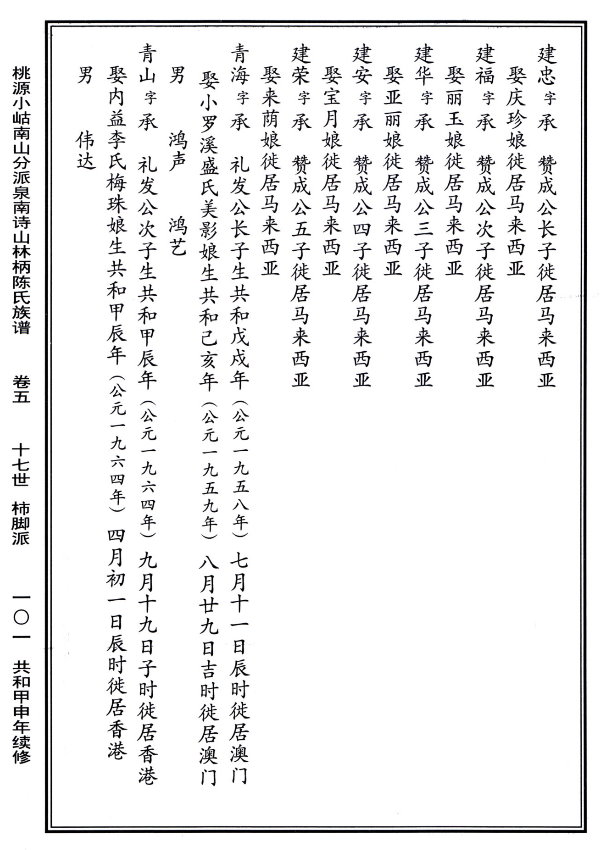 建忠字承 赞成公长子徙居马来西亚
娶庆珍娘徙居马来西亚
建福字承 赞成公次子徙居马来西亚
娶丽玉娘徙居马来西亚
建华字承 赞成公三子徙居马来西亚
娶亚丽娘徙居马来西亚
建安字承 赞成公四子徙居马来西亚
娶宝月娘徙居马来西亚
建荣字承 赞成公五子徙居马来西亚
娶来荫娘徙居马来西亚
青海字承 礼发公长子生共和戊戌年（公元一九五八年）七月十一日辰时徙居澳门
娶小罗溪盛氏美影娘生共和己亥年（公元一九五九年）八月廿九日吉时徙居澳门
男 鸿声 鸿艺
青山字承 礼发公次子生共和甲辰年（公元一九六四年）九月十九日子时徙居香港
娶内益李氏梅珠娘生共和甲辰年（公元一九六四年）四月初一日辰时徙居香港
男 伟达
桃源小岵南山分派泉南诗山林柄陈氏族谱 卷五 十七世 柿脚派 一〇一 共和甲申年续修